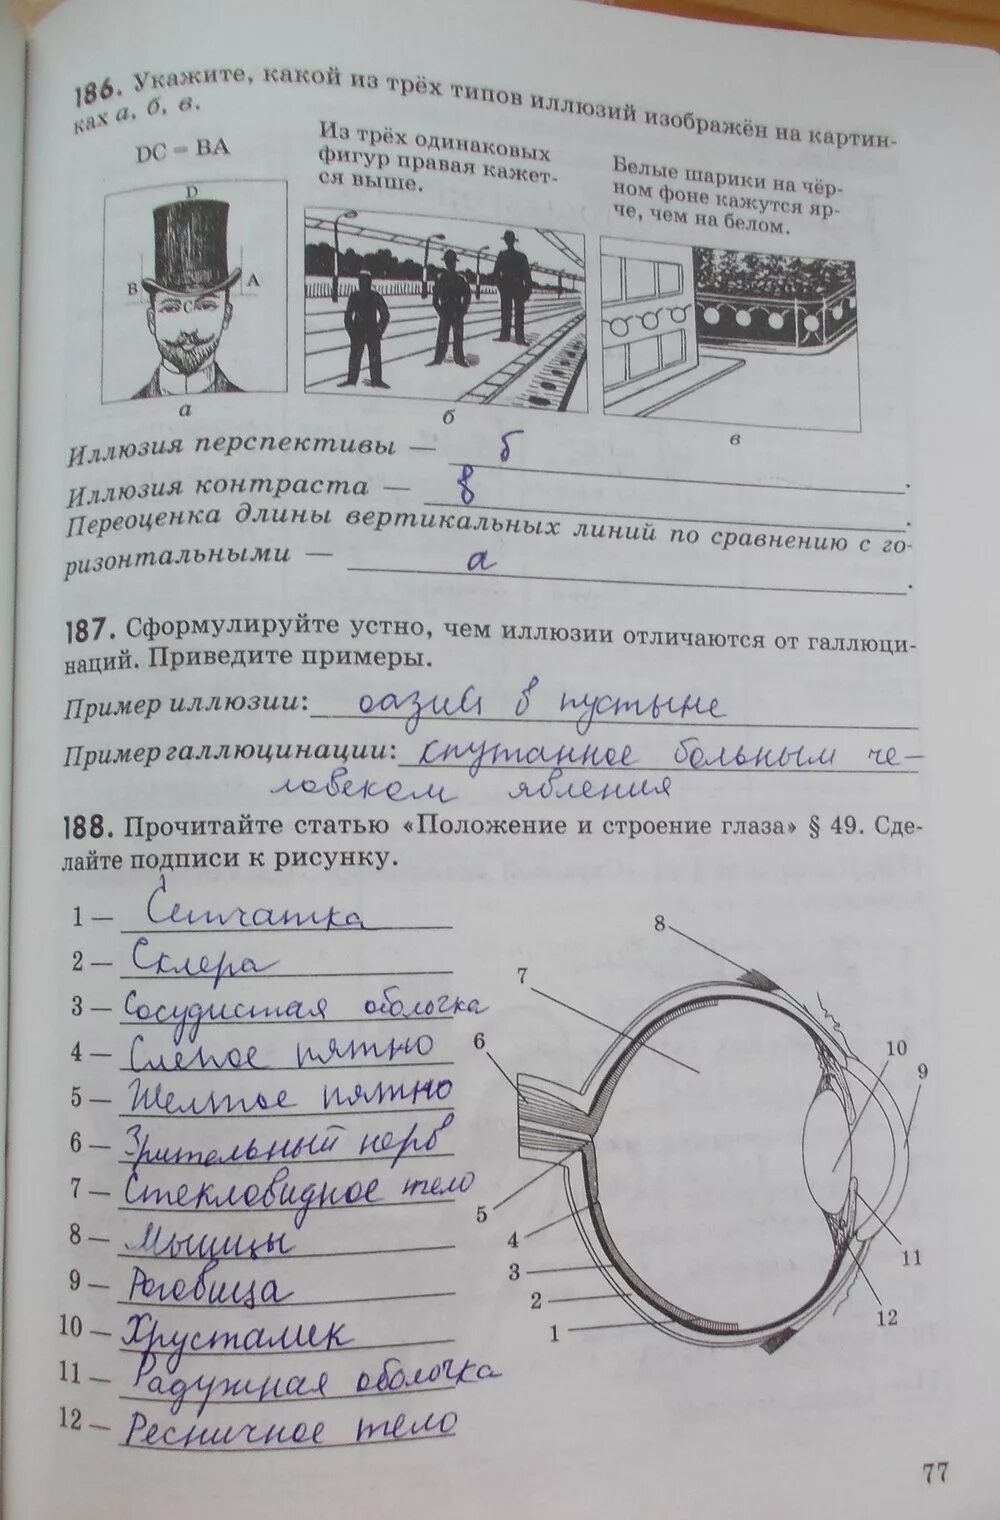 186. Укажите, какой из трёх типов иллюзий изображён на картин-
ках а, б, в.
DC = BA
Из трёх одинаковых
фигур правая кажет-
ся выше.
Белые шарики на чёр-
ном фоне кажутся яр-
че, чем на белом.
D
B
A
C
а
б
в
Иллюзия перспективы — б.
Иллюзия контраста — в.
Переоценка длины вертикальных линий по сравнению с го-
ризонтальными — а.
187. Сформулируйте устно, чем иллюзии отличаются от галлюци-
наций. Приведите примеры.
Пример иллюзии: оазис в пустыне
Пример галлюцинации: спутанное больным че-
ловеком явления
188. Прочитайте статью «Положение и строение глаза» § 49. Сде-
лайте подписи к рисунку.
1 — Сетчатка
2 — Склера
3 — Сосудистая оболочка
4 — Слепое пятно
5 — Желтое пятно
6 — Зрительный нерв
7 — Стекловидное тело
8 — Мышцы
9 — Роговица
10 — Хрусталик
11 — Радужная оболочка
12 — Ресничное тело
8
7
6
10
9
5
4
3
2
1
11
12
77